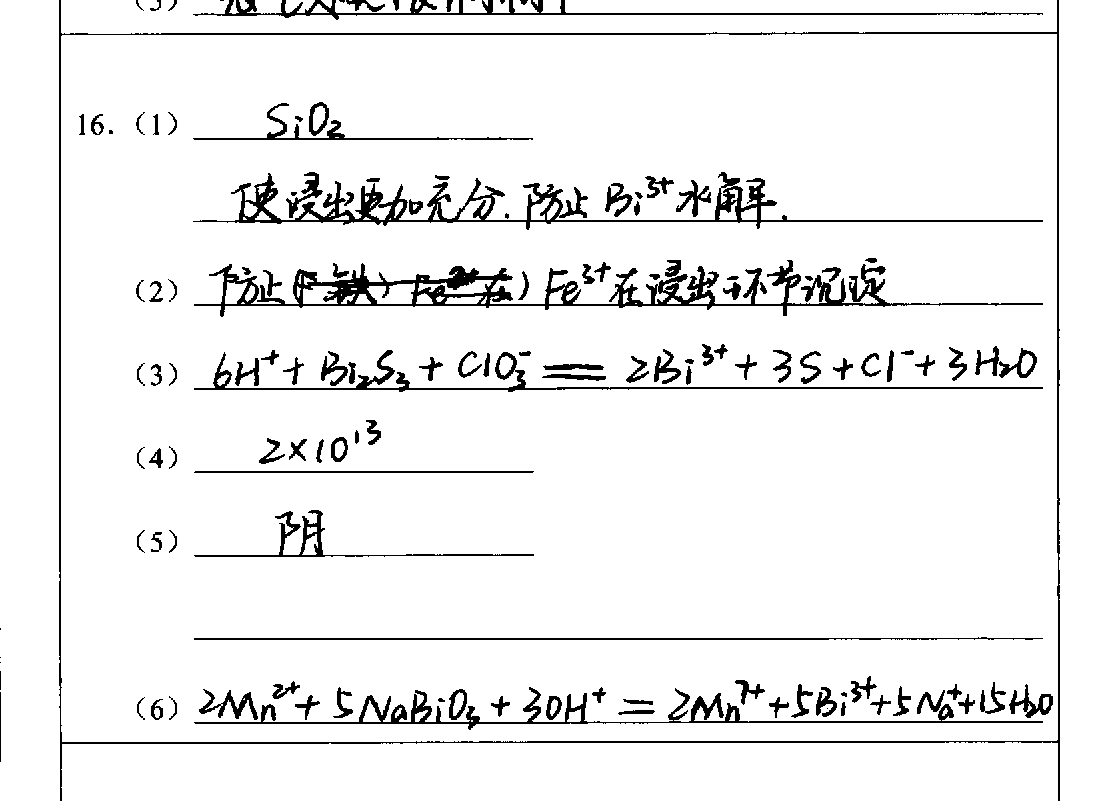 16.（1） SiO₂
使浸出更加充分.防止Bi³⁺水解.
（2）防止 Fe³⁺在浸出环节沉淀
（3）6H⁺ + Bi₂S₃ + ClO₃⁻ == 2Bi³⁺ + 3S + Cl⁻ + 3H₂O
（4）2×10¹³
（5）阴
（6）2Mn²⁺ + 5NaBiO₃ + 30H⁺ = 2Mn⁷⁺ + 5Bi³⁺ + 5Na⁺ + 15H₂O